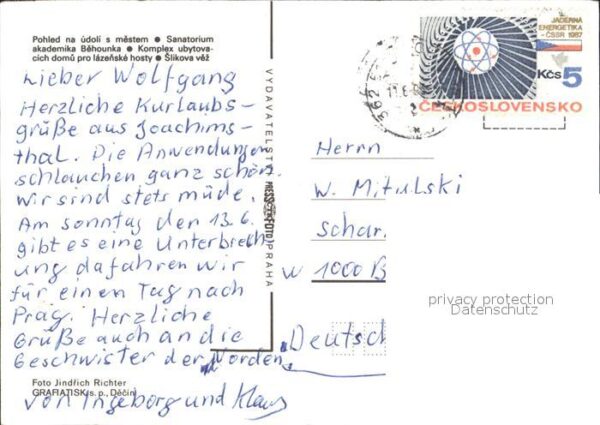 Pohled na údolí s městem ● Sanatorium
akademika Běhounka ● Komplex ubytova-
cích domů pro lázeňské hosty ● Šlikova věž
Lieber Wolfgang
Herzliche Kurlaubs-
grüße aus Joachims-
thal. Die Anwendungen
schlauchen ganz schön.
Wir sind stets müde.
Am Sonntag den 13.6.
gibt es eine Unterbrech
ung da fahren wir
für einen Tag nach
Prag. Herzliche
Grüße auch an die
Geschwister der Norden
von Ingeborg und Klaus
Foto Jindřich Richter
GRAFIATISK s. p., Děčín
VYDAVATELSTVÍ PRESSFOTO PRAHA
JADERNÁ
ENERGETIKA
ČSSR 1987
Kčs 5
ČESKOSLOVENSKO
362
11.6.
2
Herrn
W. Mitulski
Schar
W 1000 B
Deutsch
privacy protection
Datenschutz